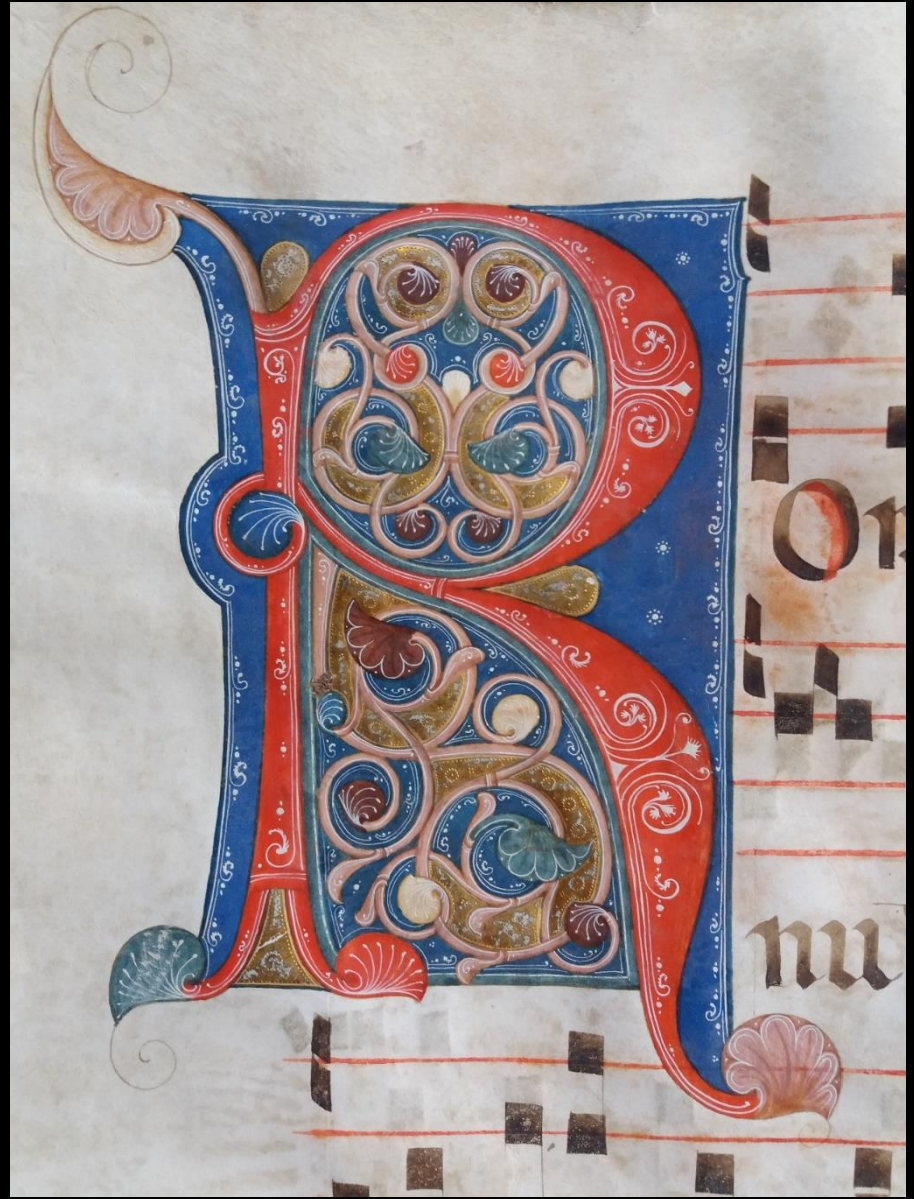 ROr
nu